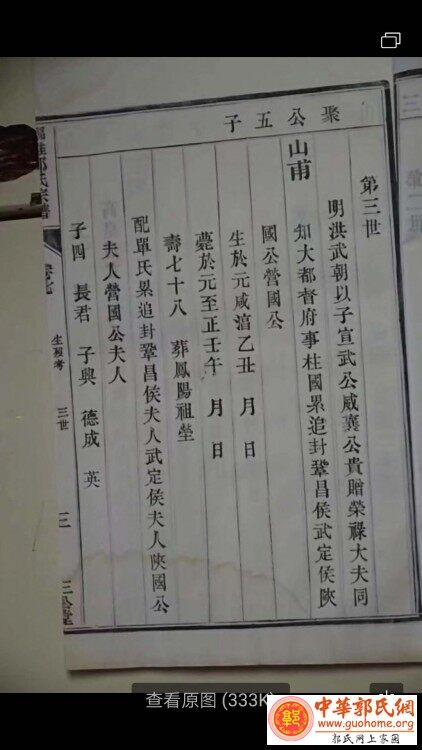 聚公五子
第三世
山甫
明洪武朝以子宣武公威襄公貴贈榮祿大夫同
知大都督府事柱國累追封鞏昌侯武定侯陝
國公營國公
生於元咸湻乙丑 月 日
薨於元至正壬午 月 日
壽七十八 葬鳳陽祖塋
配單氏累追封鞏昌侯夫人武定侯夫人陝國公
夫人營國公夫人
子四 長君 子興 德成 英
郭氏宗譜
生歿考
三世
查看原图 (333K)
中華郭氏網
www.guohome.org
郭氏网上家园